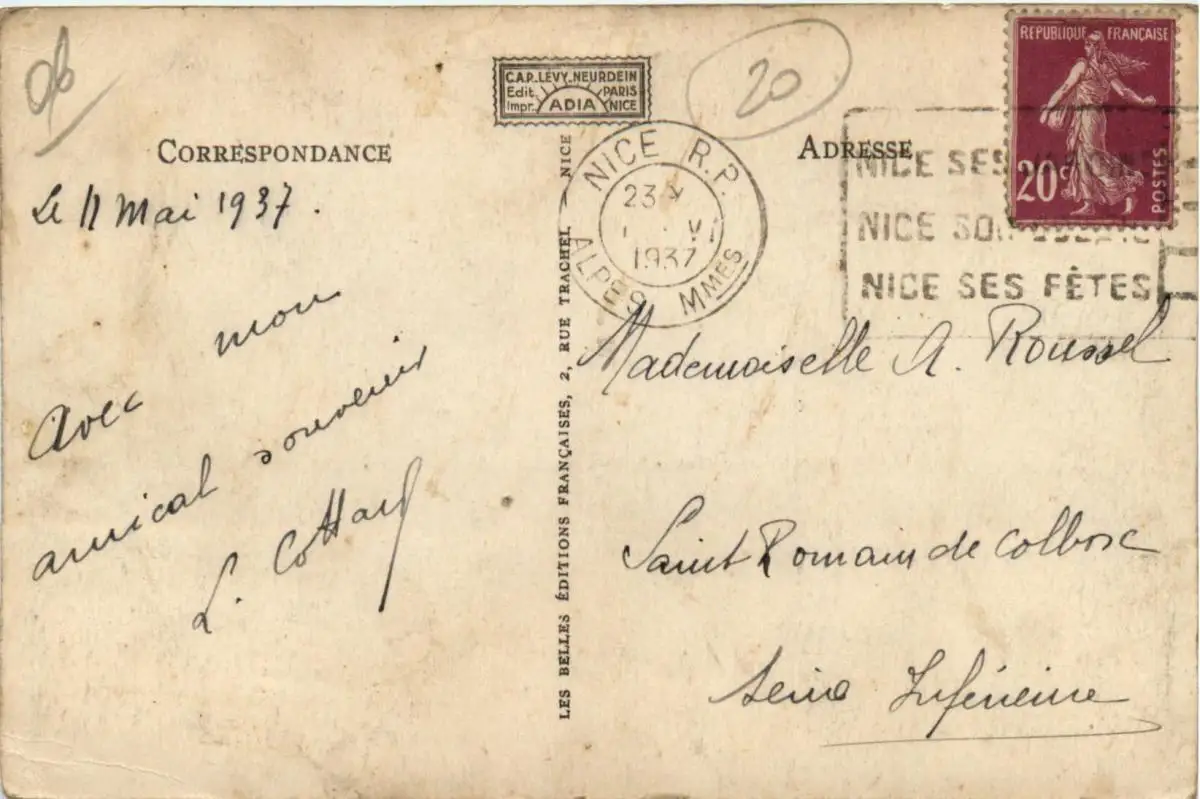 96
C.A.P. LÉVY. NEURDEIN
Edit. PARIS
Impr. ADIA NICE
20
RÉPUBLIQUE FRANÇAISE
20c
POSTES
CORRESPONDANCE
ADRESSE
NICE R.P.
23
1937
ALPES MMES
NICE SES
NICE SON
NICE SES FÊTES
Le 11 Mai 1937.
Avec mon
amical souvenir
L. Cottard
LES BELLES ÉDITIONS FRANÇAISES, 2, RUE TRACHEL — NICE
Mademoiselle A. Roussel
Saint Romain de Colbosc
Seine Inférieure